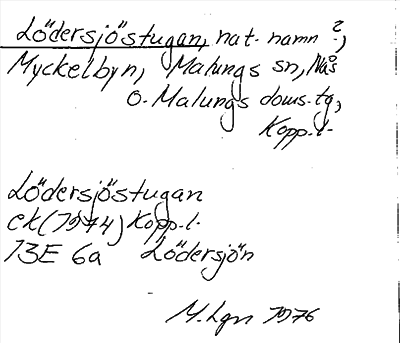 Lödersjöstugan, nat. namn ?,
Myckelbyn, Malungs sn, Nås
o. Malungs doms.tg,
Kopp.l.
Lödersjöstugan
ek (1974) Kopp.l.
13E 6a Lödersjön
M. Lgn 1976